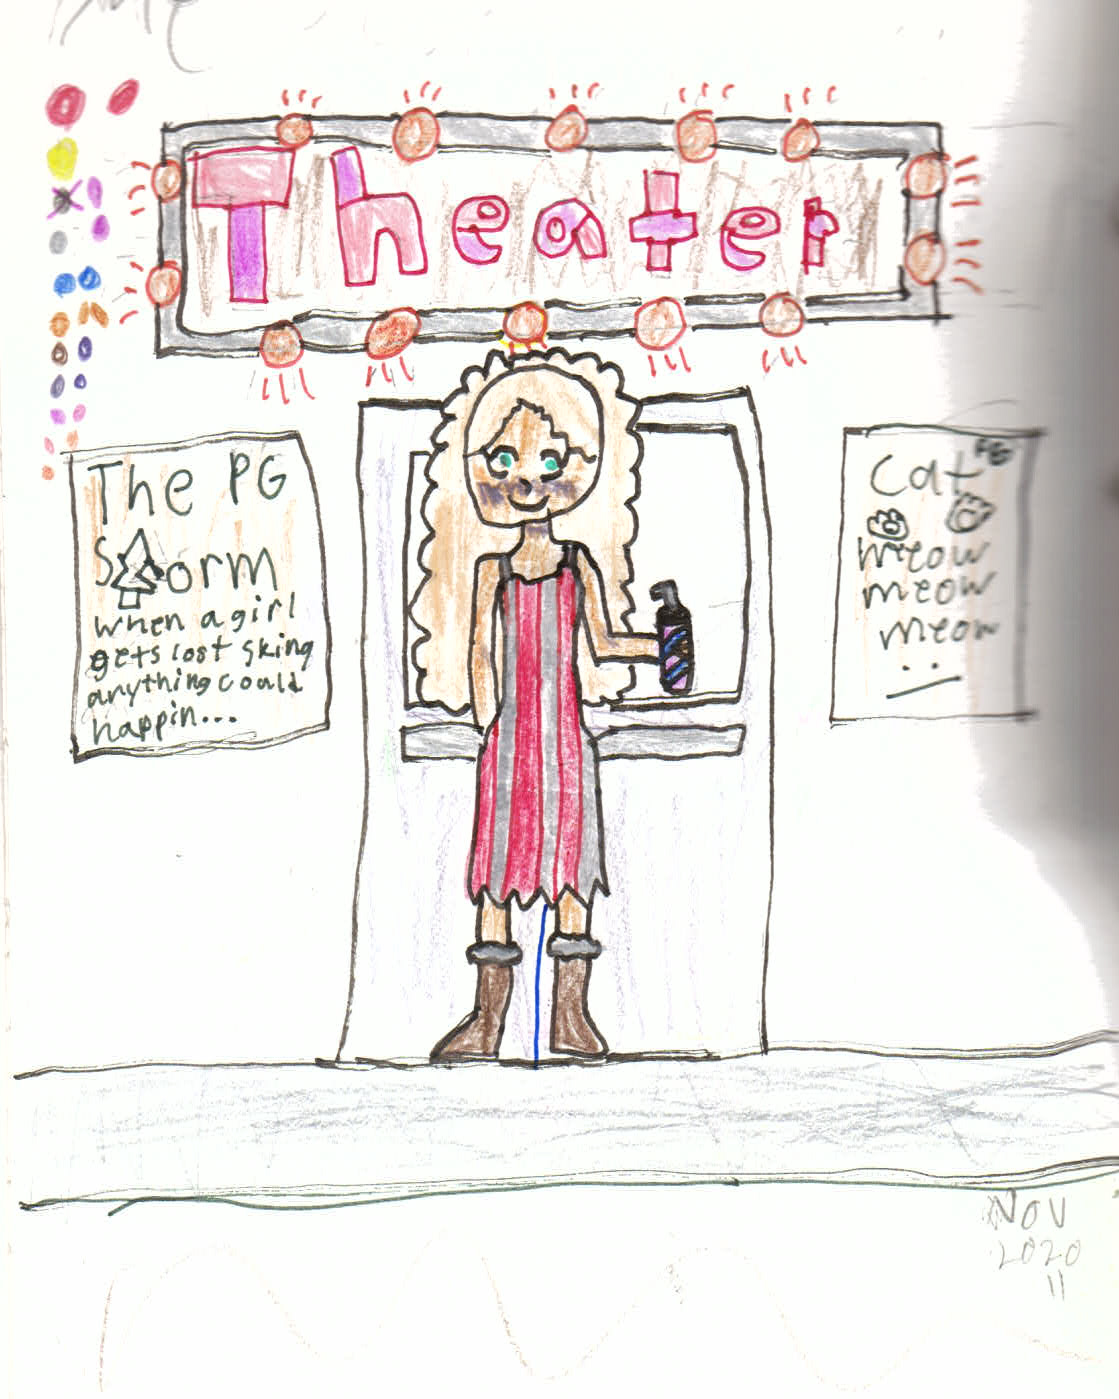 Theater
The PG
Storm
when a girl
gets lost sking
anything could
happin...
PG
Cat
meow
meow
meow
Nov
2020
11